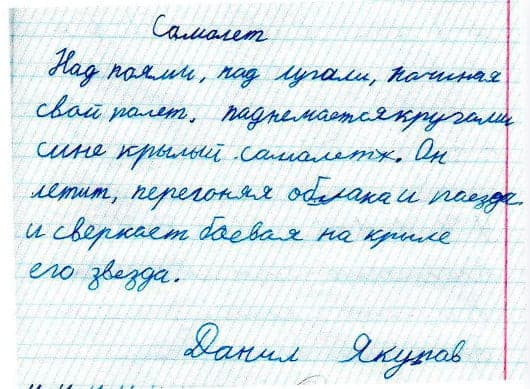 Самалет
Над поями, над лугали, начиная
свой палет, паднемаетсякругами
сине крылый самалетк. Он
летит, перегоняя облака и поезда
и сверкает боевая на криле
его звезда.
Данил Якупов